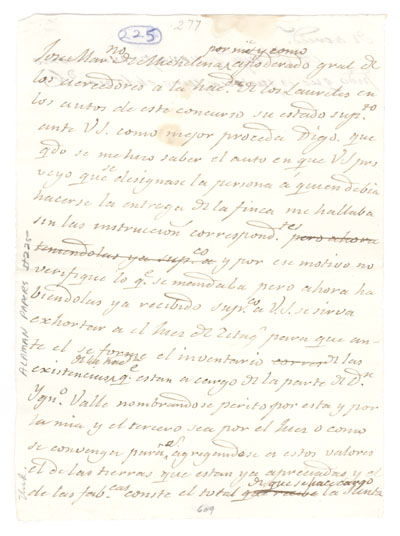 225
277
por mi y como
Jose Mar.no de Michelena apoderado gral de
los acreedores a la hac.da de los Laureles en
los autos de este concurso su estado sup.to
ante VS. como mejor proceda Digo. que
qdo se me hizo saber el auto en que VS pro
veyo que se designase la persona á quien debia
hacerse la entrega de la finca me hallaba
sin las instruccion correspond.tes pero ahora
teniendolas ya sup.co a y por ese motivo no
verifique lo q.e se mandaba pero ahora ha
biendolas ya recibido sup.co a VS. se sirva
exhortar a el Juez de para que an
te el se forme el inventario de las
de la hac.da
existencias q.e estan a cargo de la parte de D.n
Ygn.o Valle nombrandose perito por esta y por
la mia y el tercero sea por el Juez o como
se convenga para el agregandose a estos valores
el de las tierras que estan ya apreciadas y el
de que se hace cargo
de las fab.cas conste el total que recibe la Junta
ALAMAN PAPERS #225
609